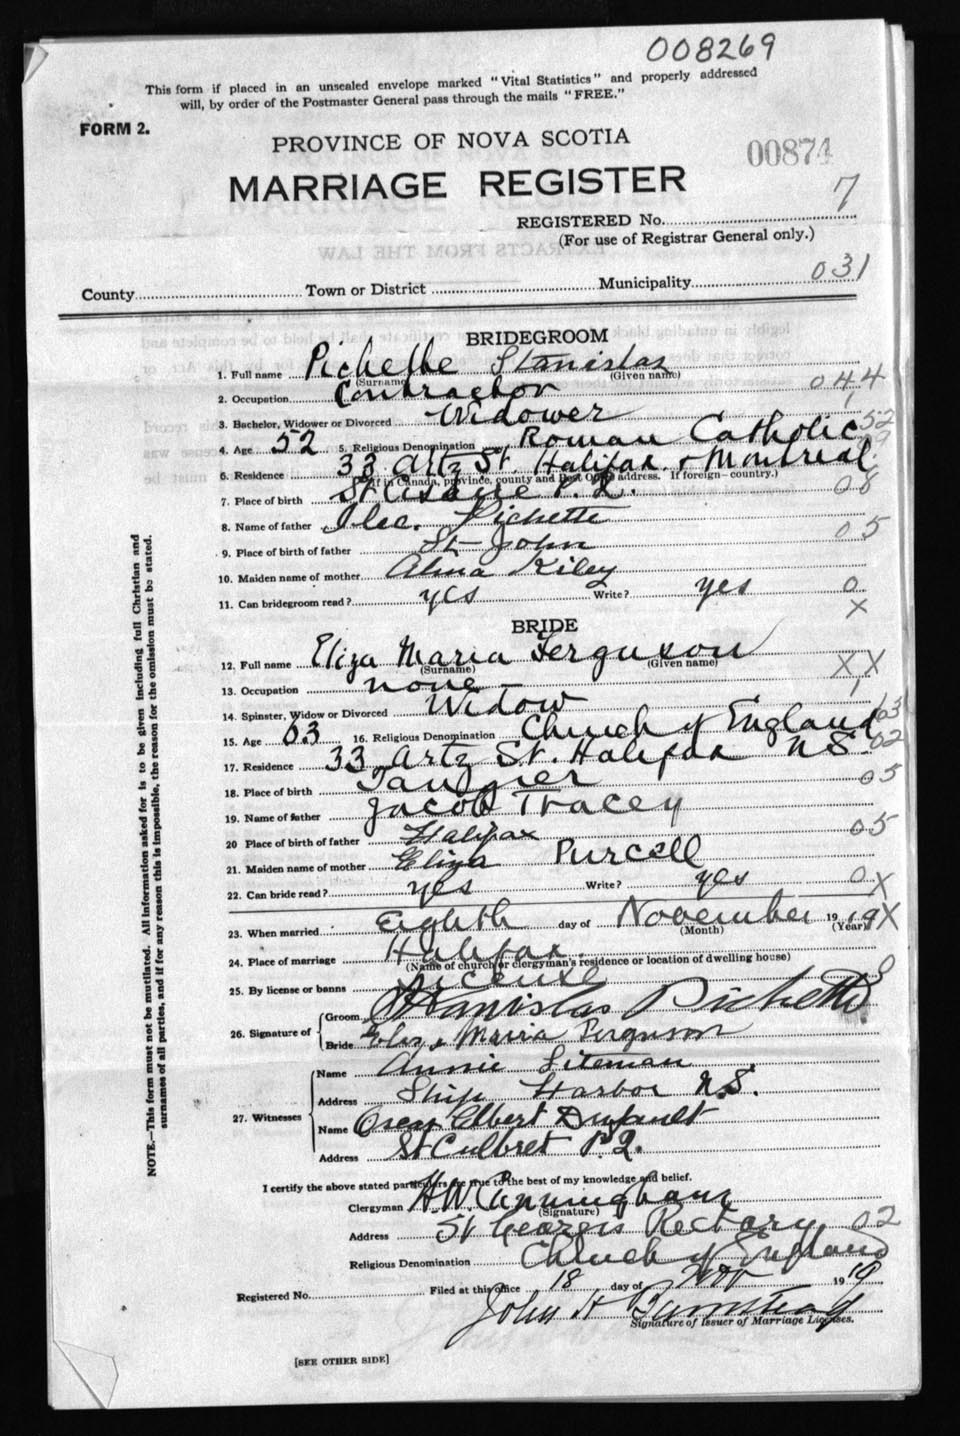 008269
This form if placed in an unsealed envelope marked "Vital Statistics" and properly addressed
will, by order of the Postmaster General pass through the mails "FREE."
FORM 2.
PROVINCE OF NOVA SCOTIA
00874
MARRIAGE REGISTER
7
REGISTERED No.
(For use of Registrar General only.)
County Town or District Municipality 031
BRIDEGROOM
1. Full name Pichette Stanislas
(Surname) (Given name)
2. Occupation Contractor 044
3. Bachelor, Widower or Divorced Widower 1
4. Age 52 5. Religious Denomination Roman Catholic 52
6. Residence 33 Artz St. Halifax & Montreal
(If in Canada, province, county and Post Office address. If foreign—country.)
7. Place of birth P.Q. 08
8. Name of father Pichette
9. Place of birth of father St John 05
10. Maiden name of mother Alma Kiley
11. Can bridegroom read? yes Write? yes 0
X
BRIDE
12. Full name Eliza Maria Ferguson
(Surname) (Given name)
13. Occupation none XX
14. Spinster, Widow or Divorced Widow 1
15. Age 63 16. Religious Denomination Church of England 63
17. Residence 33 Artz St. Halifax N S. 02
18. Place of birth Tangier 05
19. Name of father Jacob Tracey
20 Place of birth of father Halifax 05
21. Maiden name of mother Eliza Purcell
22. Can bride read? yes Write? yes 0X
23. When married Eighth day of November 19 19 X
(Month) (Year)
24. Place of marriage Halifax
(Name of church or clergyman's residence or location of dwelling house)
25. By license or banns License
26. Signature of Groom Stanislas Pichette
Bride Eliza Maria Ferguson
27. Witnesses Name Annie Siteman
Address Ship Harbor N.S.
Name Oscar Elbert
Address St P.Q.
I certify the above stated particulars are true to the best of my knowledge and belief.
Clergyman H.W. Cunningham
(Signature)
Address St Georges Rectory 02
Religious Denomination Church of England
Registered No. Filed at this office 18 day of Nov 19 19
John H
Signature of Issuer of Marriage Licenses.
[SEE OTHER SIDE]
NOTE.—This form must not be mutilated. All information asked for is to be given including full Christian and
surnames of all parties, and if for any reason this is impossible, the reason for the omission must be stated.